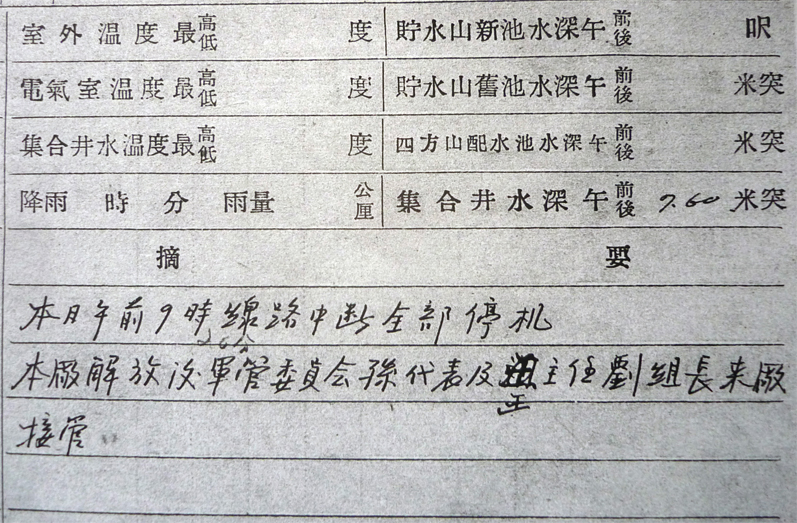 室外温度最高低 度 貯水山新池水深午前後 呎
電氣室温度最高低 度 貯水山舊池水深午前後 米突
集合井水温度最高低 度 四方山配水池水深午前後 米突
降雨 時 分 雨量 公厘 集合井水深午前後 7.60 米突
摘 要
本日午前9時26分線路中断全部停机
本廠解放後軍管委員会孫代表及王主任劉組長来廠
接管